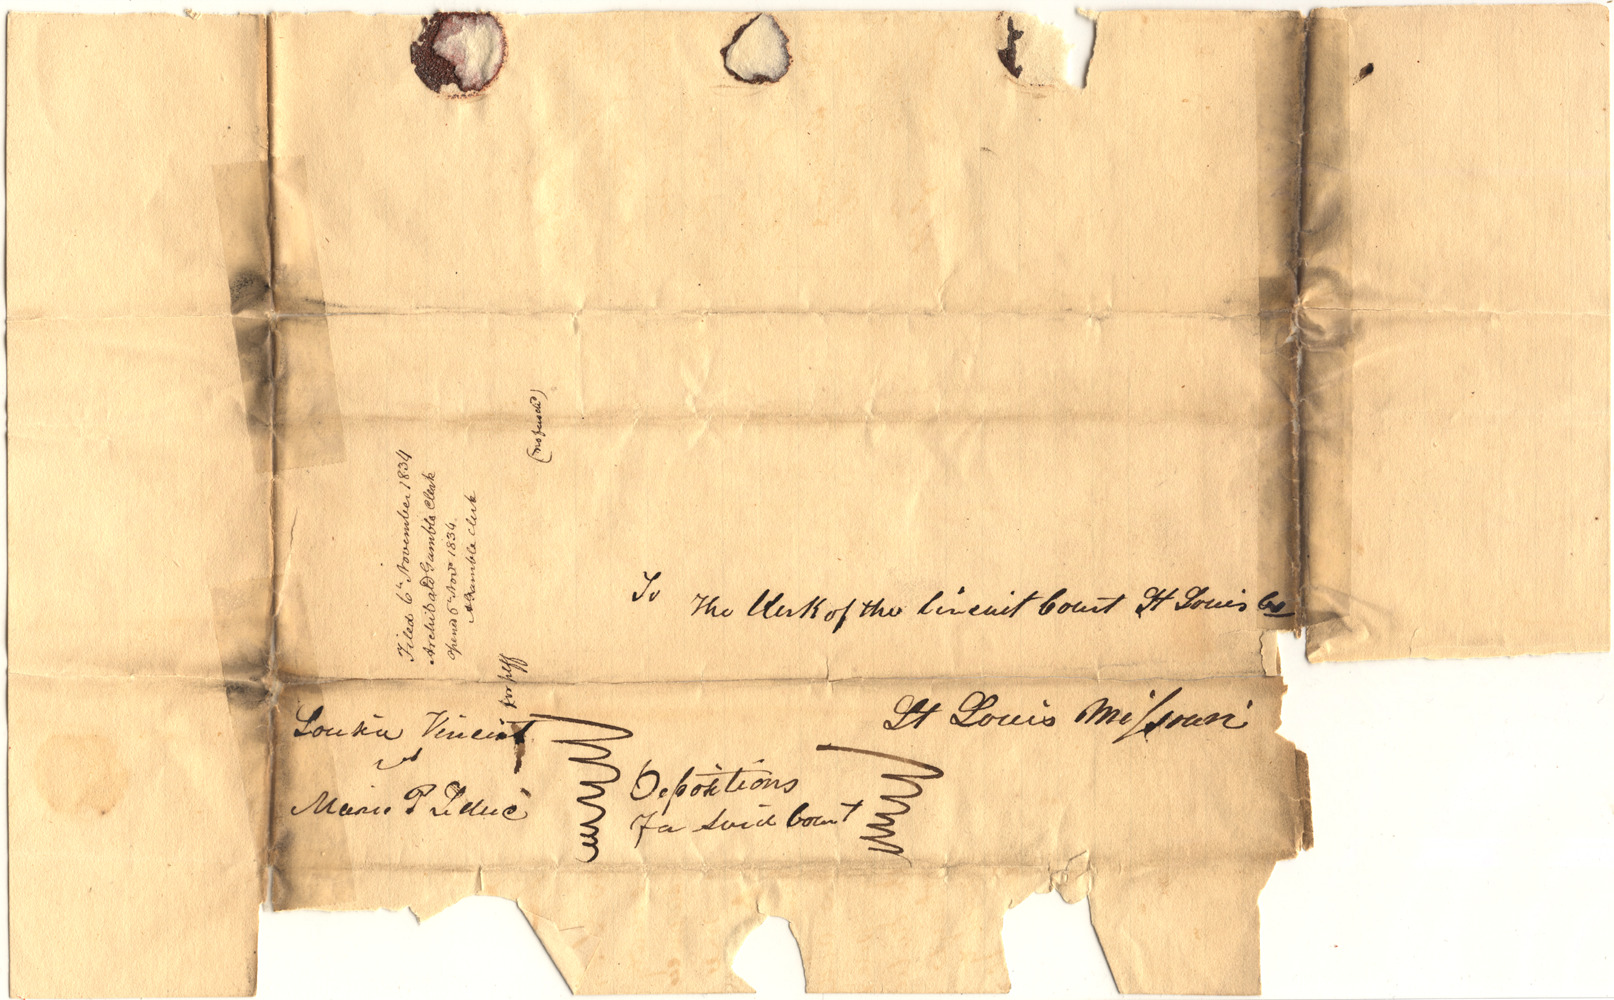 To
The Clerk of the Circuit Court St Louis Co
St Louis Missouri
Louisa Vincent
vs
Marie P Leduc
Depositions
For said Court
Filed 6th November 1834
Archibald Gamble Clerk
Opened 6th Novr 1834.
A Gamble Clerk
for plff